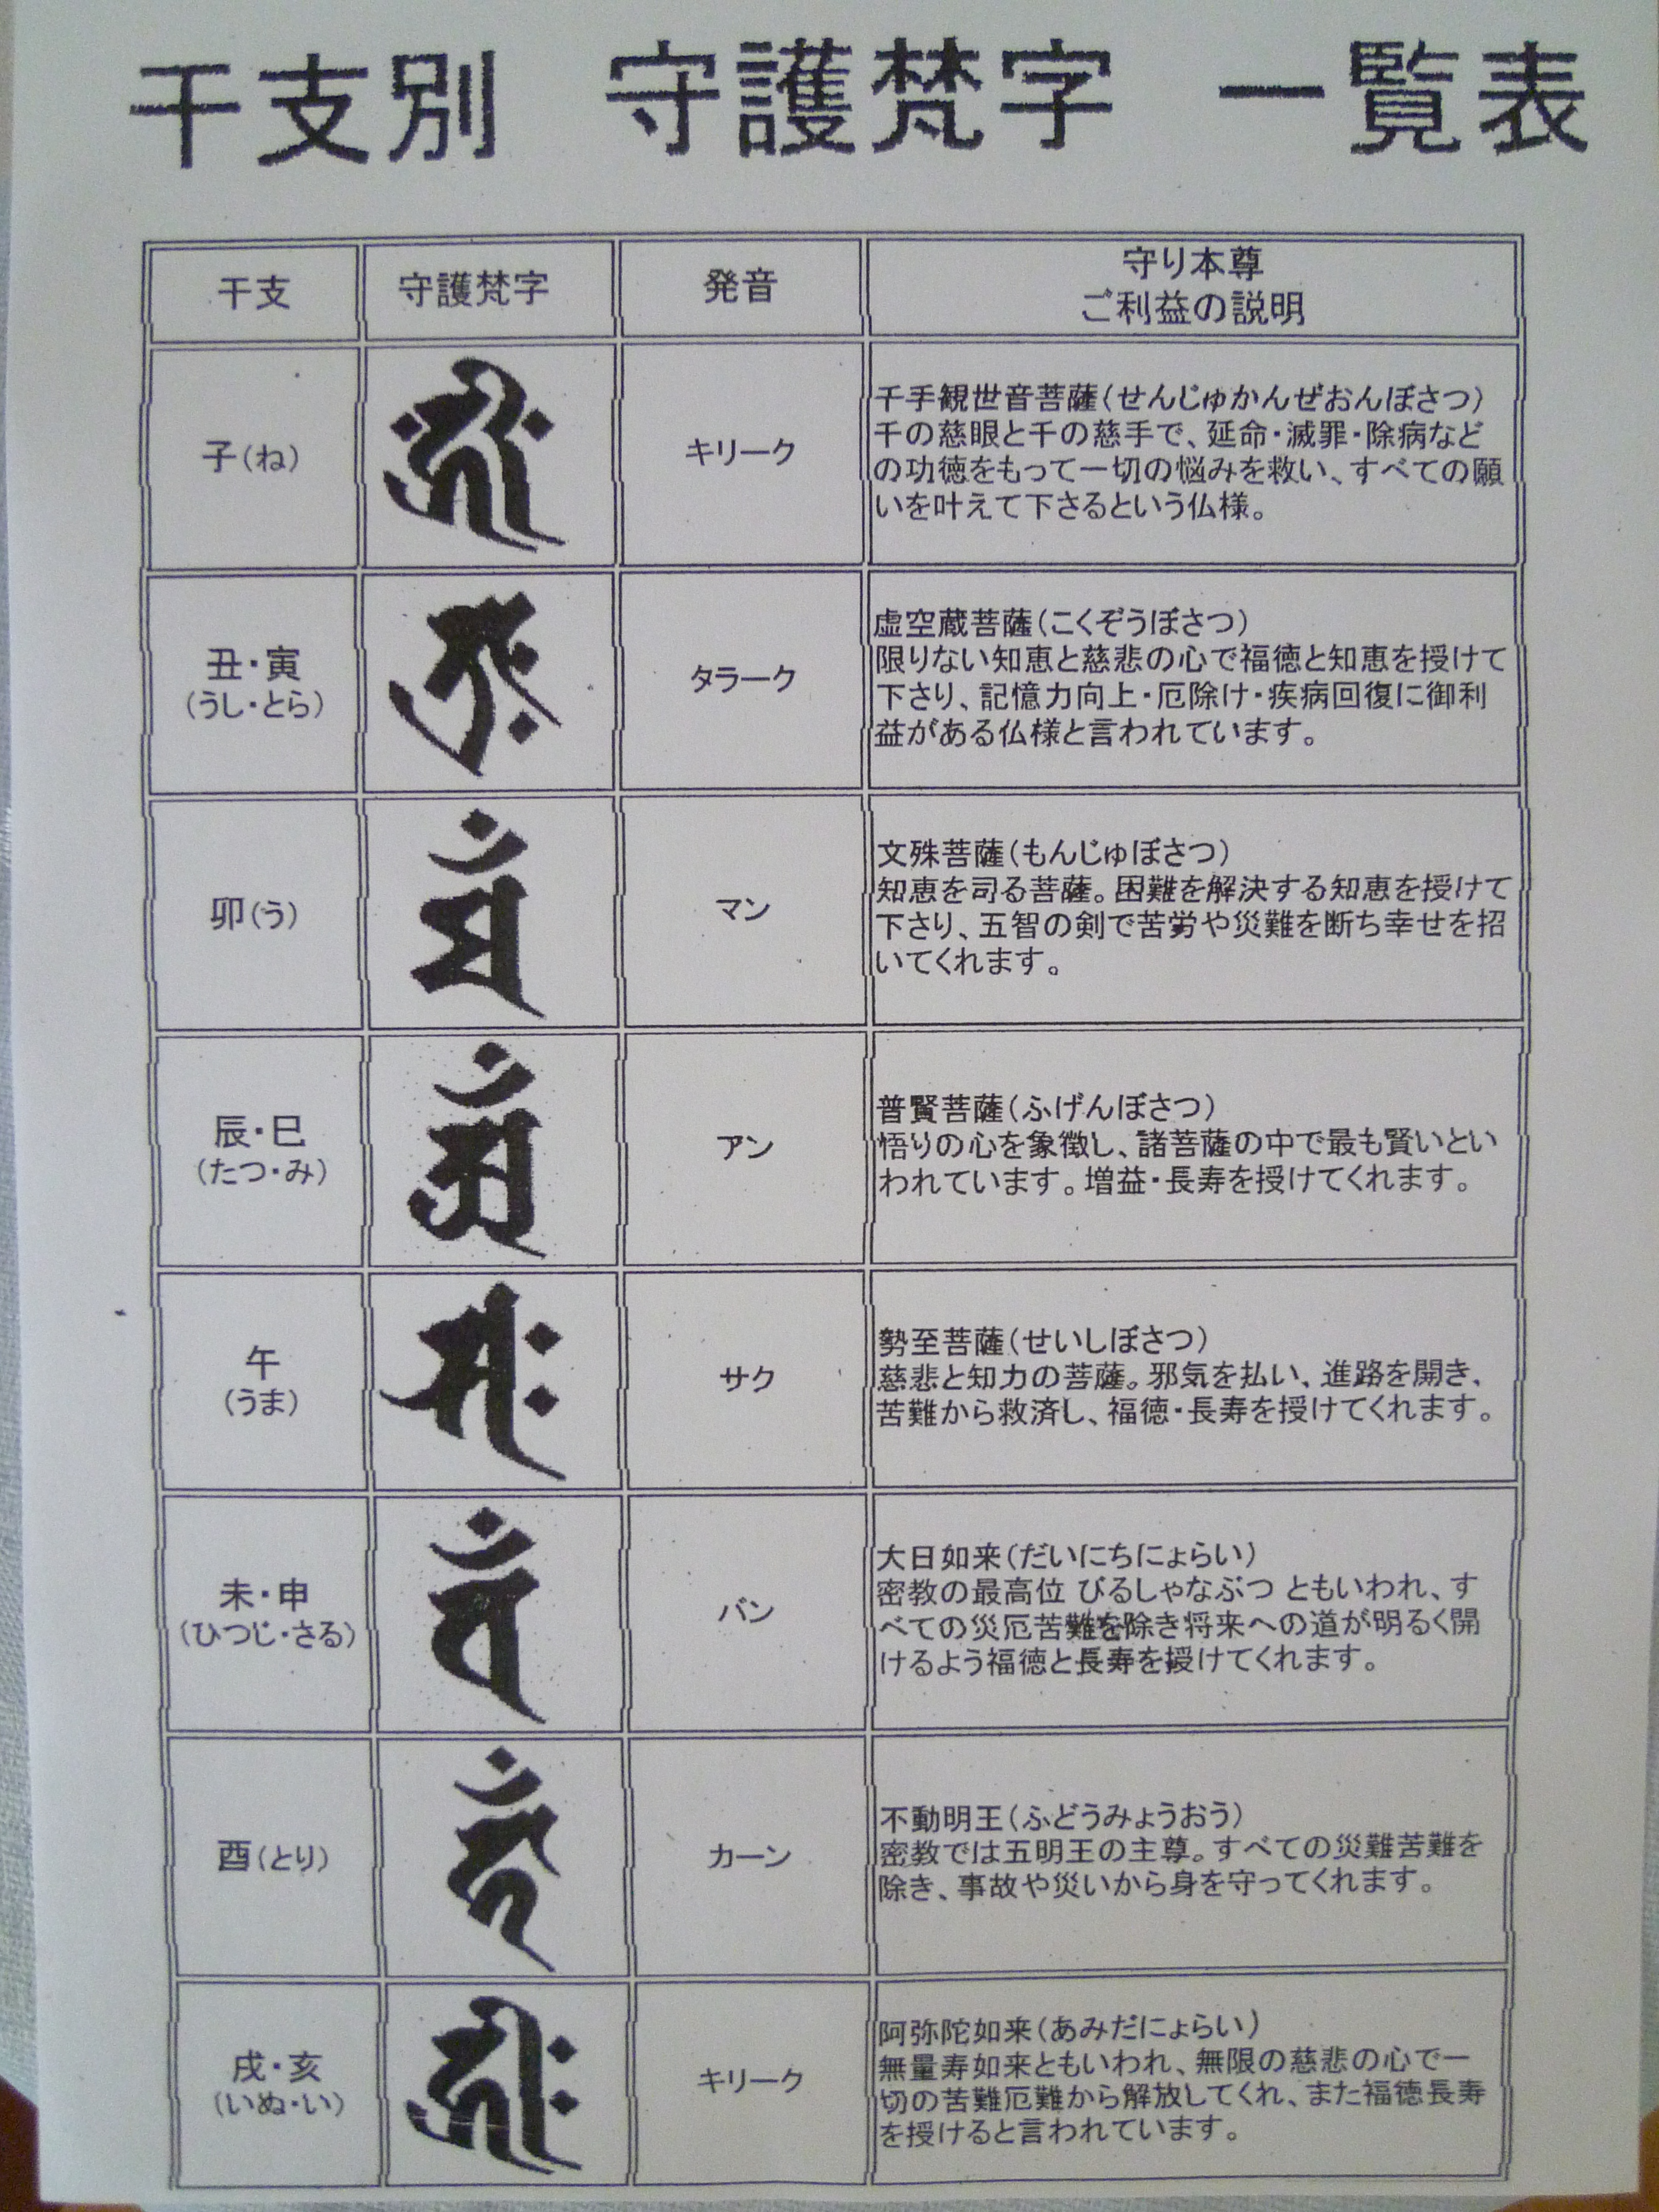 干支別 守護梵字 一覧表
干支 守護梵字 発音 守り本尊
ご利益の説明
子(ね) キリーク
千手観世音菩薩(せんじゅかんぜおんぼさつ)
千の慈眼と千の慈手で、延命・滅罪・除病など
の功徳をもって一切の悩みを救い、すべての願
いを叶えて下さるという仏様。
丑・寅
(うし・とら)
タラーク
虚空蔵菩薩(こくぞうぼさつ)
限りない知恵と慈悲の心で福徳と知恵を授けて
下さり、記憶力向上・厄除け・疾病回復に御利
益がある仏様と言われています。
卯(う) マン
文殊菩薩(もんじゅぼさつ)
知恵を司る菩薩。困難を解決する知恵を授けて
下さり、五智の剣で苦労や災難を断ち幸せを招
いてくれます。
辰・巳
(たつ・み)
アン
普賢菩薩(ふげんぼさつ)
悟りの心を象徴し、諸菩薩の中で最も賢いとい
われています。増益・長寿を授けてくれます。
午
(うま)
サク
勢至菩薩(せいしぼさつ)
慈悲と知力の菩薩。邪気を払い、進路を開き、
苦難から救済し、福徳・長寿を授けてくれます。
未・申
(ひつじ・さる)
バン
大日如来(だいにちにょらい)
密教の最高位 びるしゃなぶつ ともいわれ、す
べての災厄苦難を除き将来への道が明るく開
けるよう福徳と長寿を授けてくれます。
酉(とり) カーン
不動明王(ふどうみょうおう)
密教では五明王の主尊。すべての災難苦難を
除き、事故や災いから身を守ってくれます。
戌・亥
(いぬ・い)
キリーク
阿弥陀如来(あみだにょらい)
無量寿如来ともいわれ、無限の慈悲の心で一
切の苦難厄難から解放してくれ、また福徳長寿
を授けると言われています。